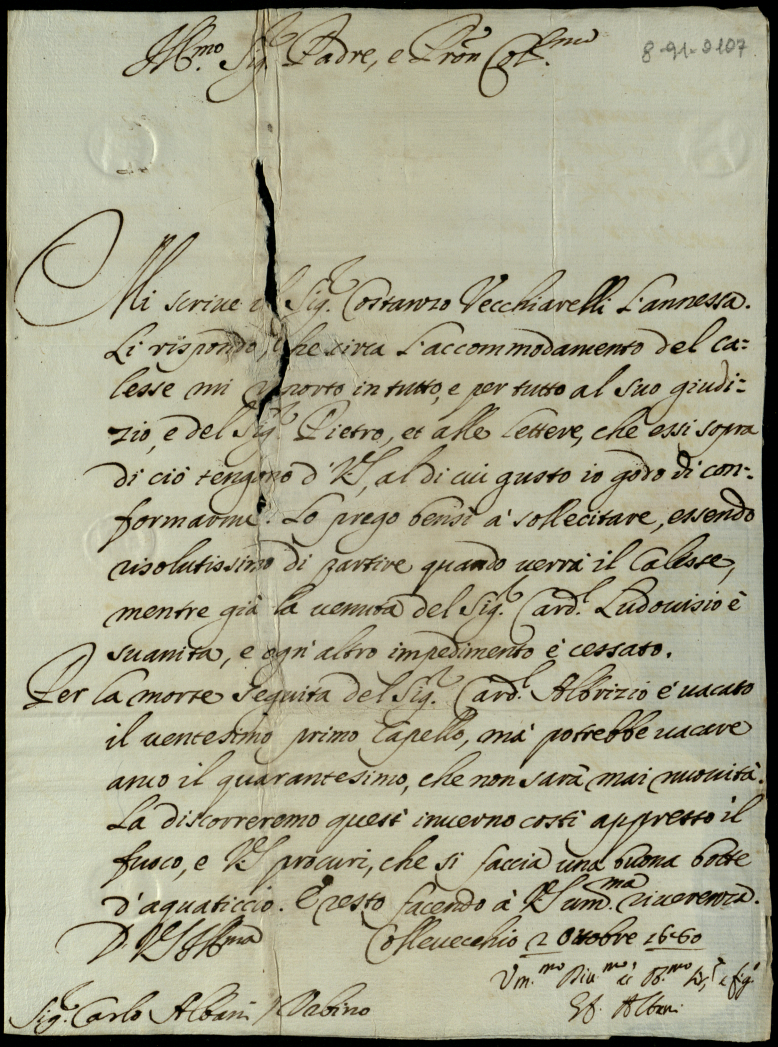 Ill.mo Sig.r Padre, e Pron Col.mo
8-91-2107
Mi scriue il Sig.r Costanzo Vecchiarelli l'annessa.
Li rispondo, che circa l'accommodamento del ca=
lesse mi riporto in tutto, e per tutto al suo giudi=
zio, e del Sig.r Pietro, et alle lettere, che essi sopra
di ciò tengono d'VS, al di cui gusto io godo di con=
formarme. Lo prego bensi à sollecitare, essendo
risolutissimo di partire quando uerrà il Calesse,
mentre già la uenuta del Sig.r Card.l Ludouisio è
suanita, e ogn'altro impedimento è cessato.
Per la morte seguita del Sig.r Card.l Albrizio è uacato
il uentesimo primo Capello, mà potrebbe uacare
anco il quarantesimo, che non sarà mai nuouità.
Là discorreremo quest' inuerno costì appresso il
fuoco, e VS procuri, che si faccia una buona botte
d'aquaticcio. E resto facendo à VS um.ma riuerenza.
D VS Ill.ma Colleuecchio 2 Ottobre 1680
Um.mo Diu.mo et Ob.mo Se.r e fig.o
Sig.r Carlo Albani / Urbino
Albani